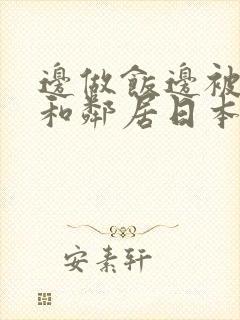 邊做飯邊被
和鄰居日本
安素軒